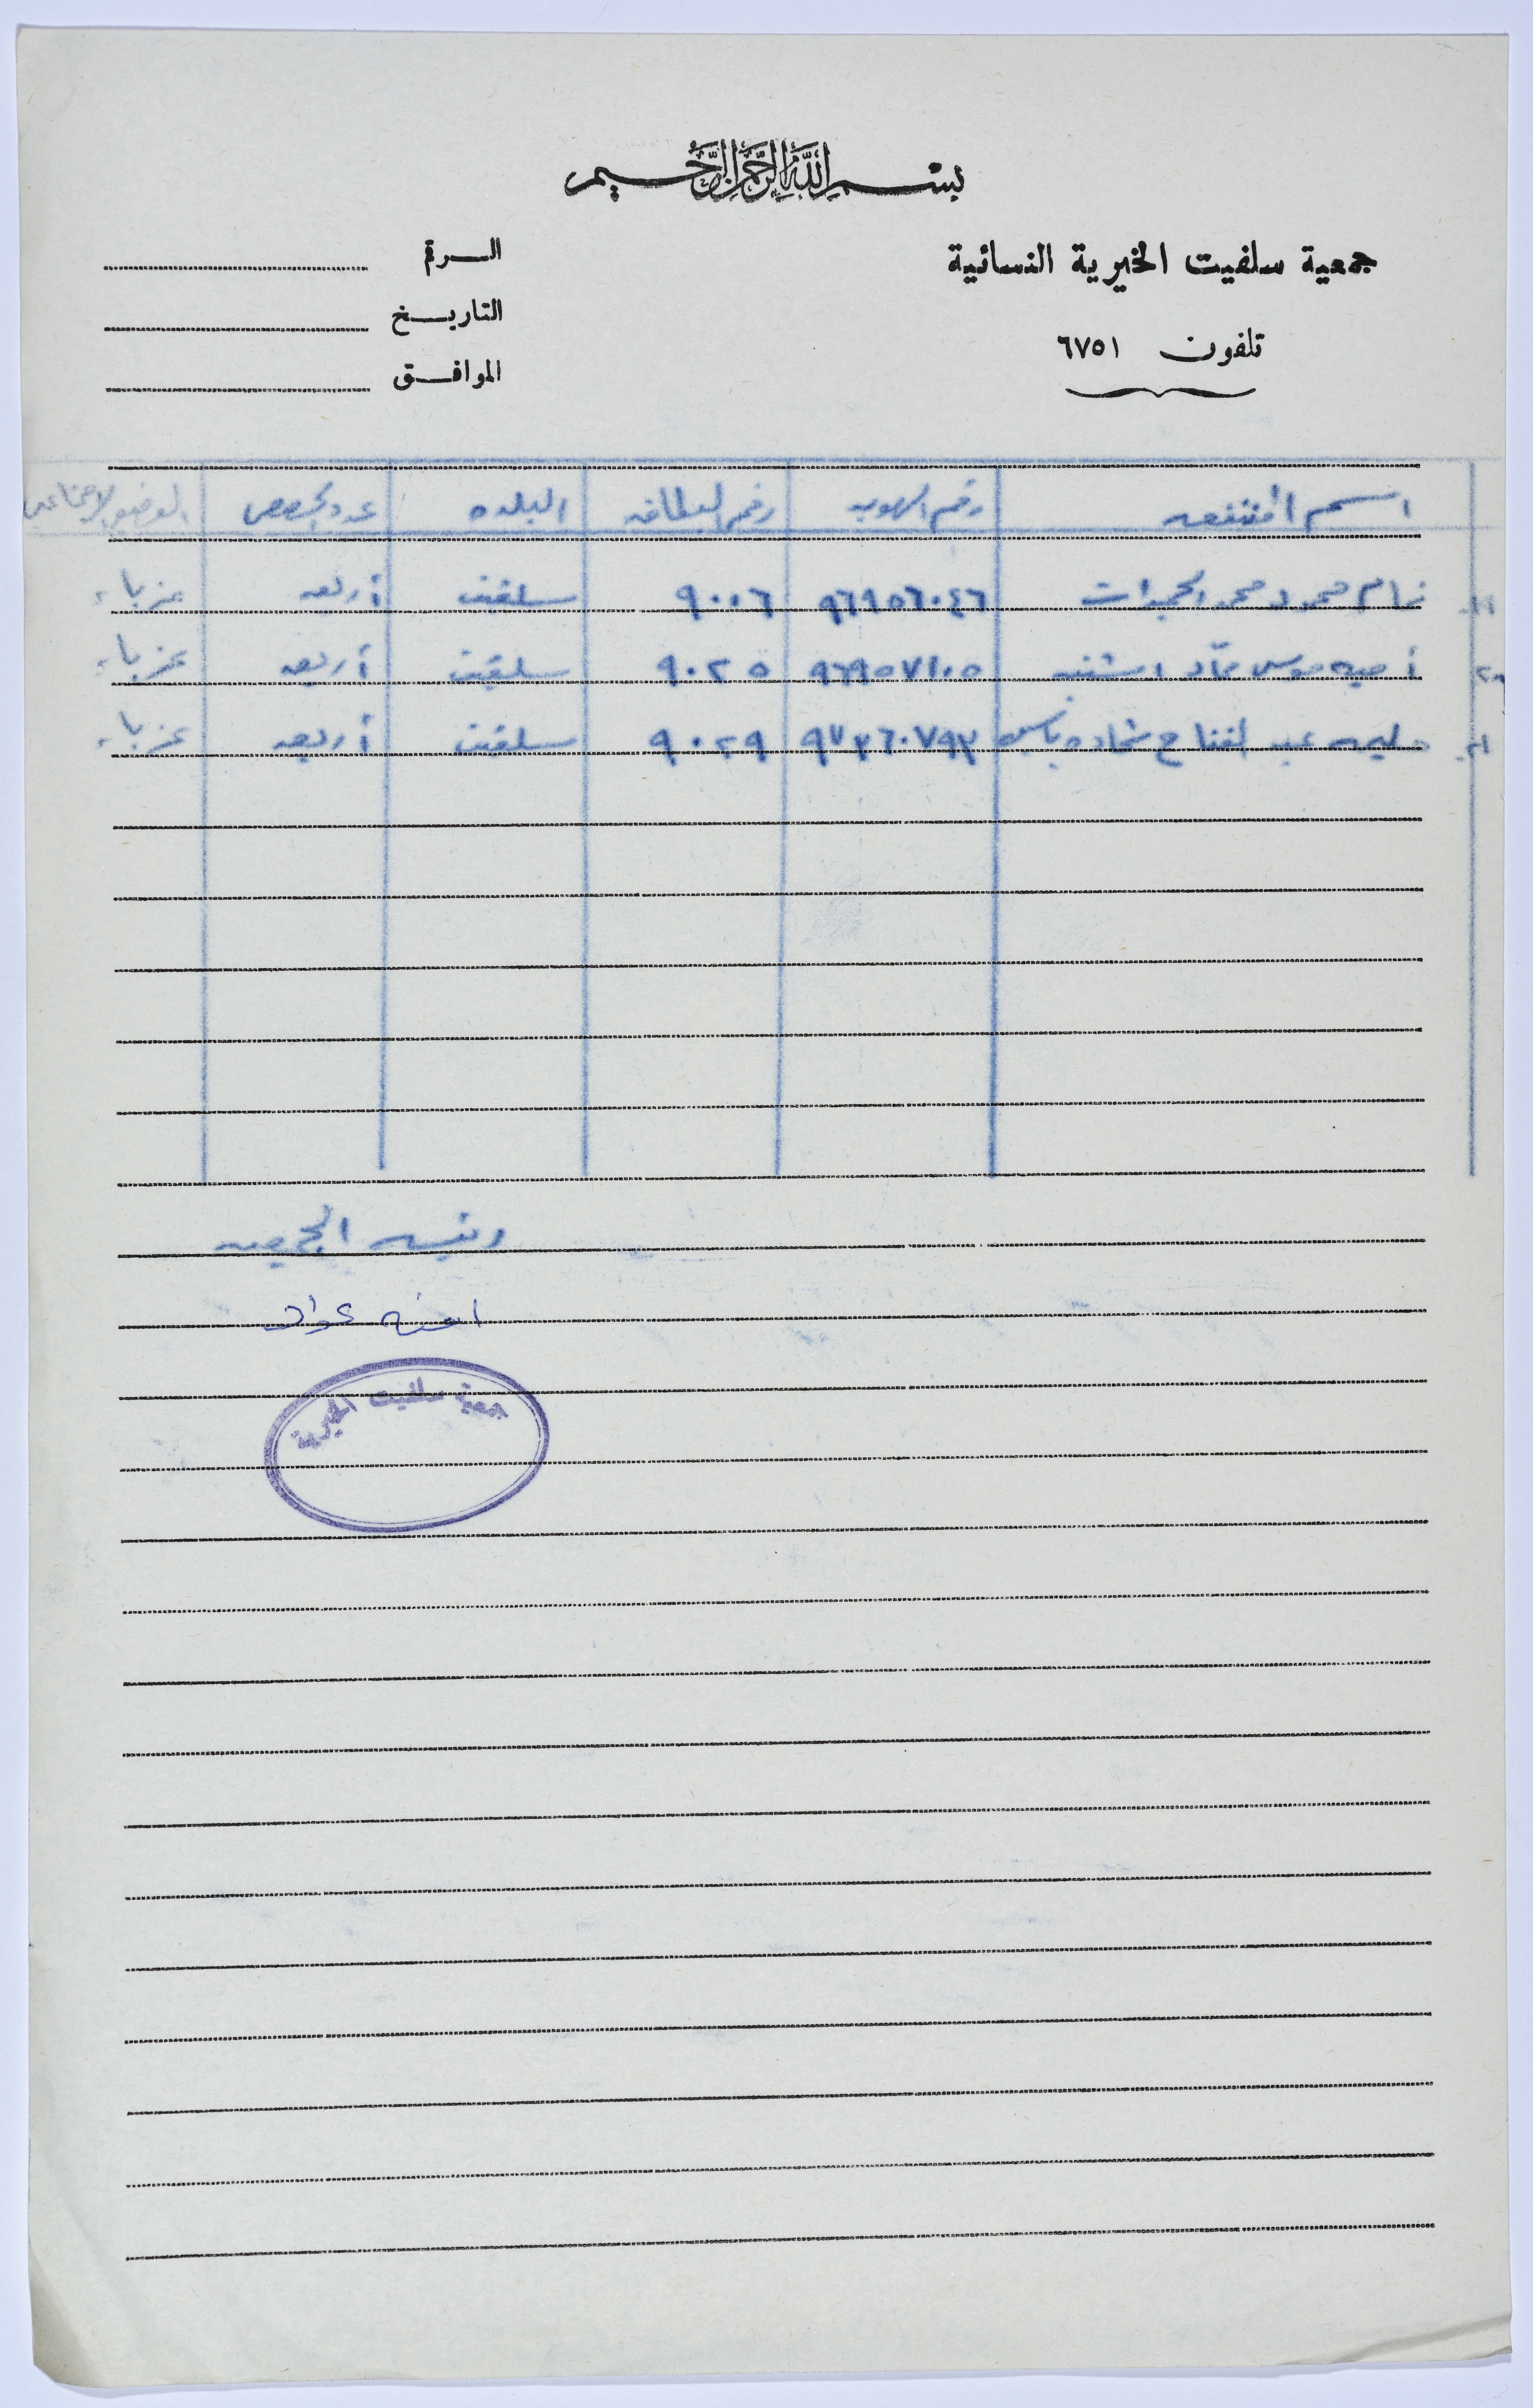 بسم الله الرحمن الرحيم
جمعية سلفيت الخيرية النسائية
تلفون ٦٧٥١
الرقم
التاريخ
الموافق
اسم المنتفعه رقم الهويه رقم البطاقه البلده عدد الحصص الوضع الاجتماعي
محمود محمد ٩٦٩٥٦٠٤٦ ٩٠٠٦ سلفيت أربعه عزباء
موسى ٩٦٩٥٧١٠٥ ٩٠٢٥ سلفيت أربعه عزباء
عبد الفتاح شحاده ٩٧٣٦٠٧٩٣ ٩٠٢٩ سلفيت أربعه عزباء
رئيسه الجمعيه
امنه عواد
جمعية سلفيت الخيرية